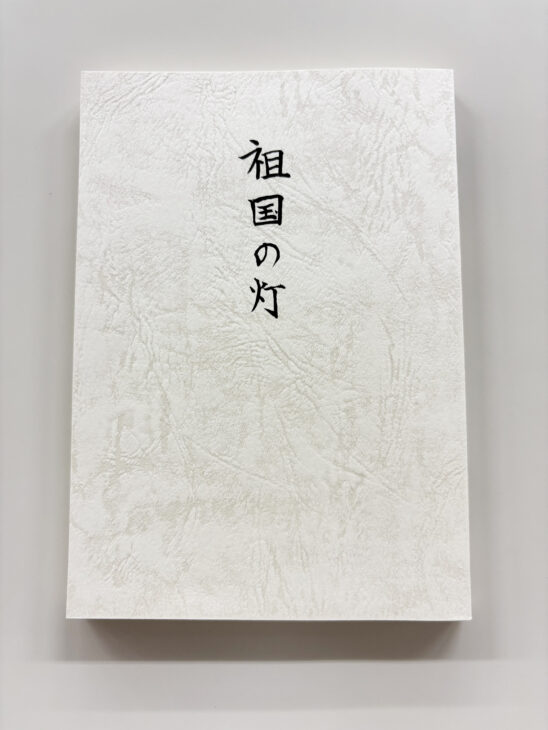 祖国の灯